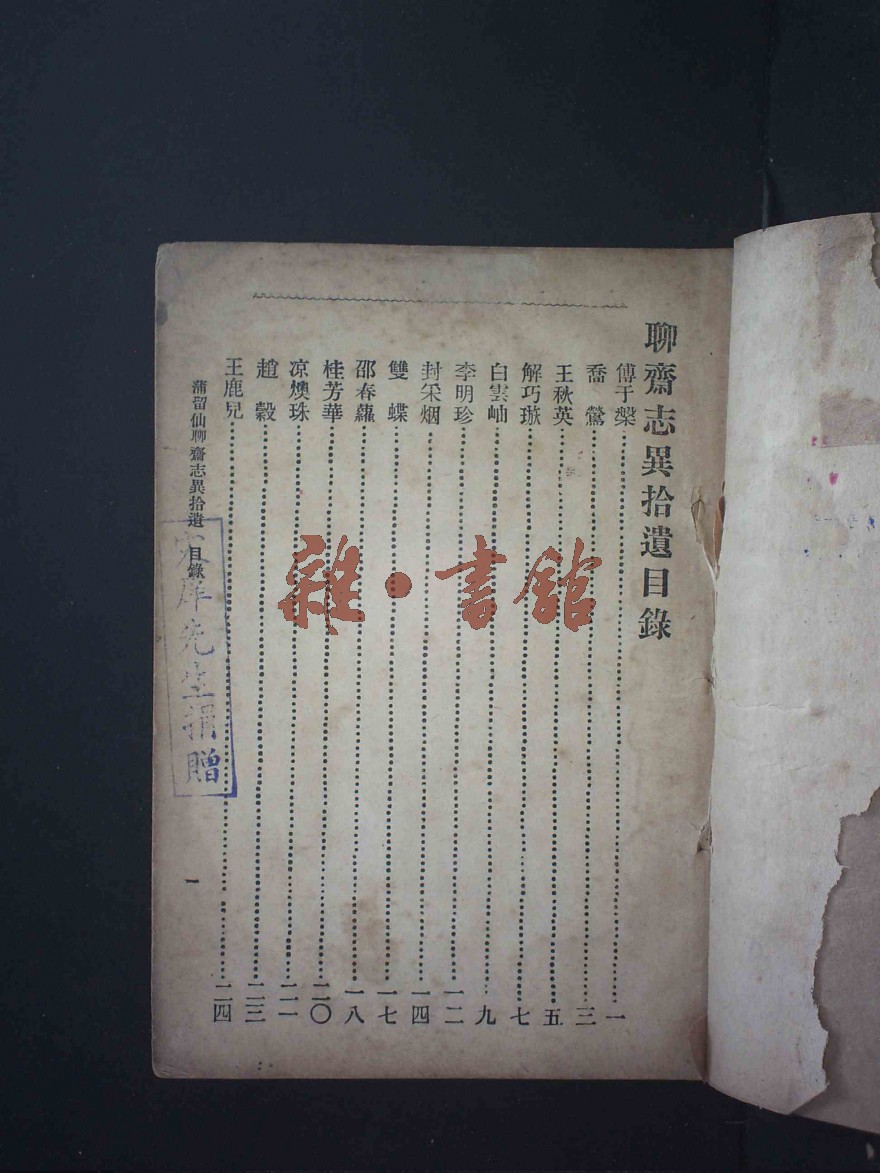 聊齋志異拾遺目錄
傅于槃……一
喬鶯……三
王秋英……五
解巧璈……七
白雲岫……九
李明珍……一二
封采烟……一四
雙蝶……一七
邵春蘿……一八
桂芳華……二〇
凉燠珠……二一
趙縠……二三
王鹿兒……二四
蒲留仙聊齋志異拾遺 目錄
一
先生捐贈
雜·書館